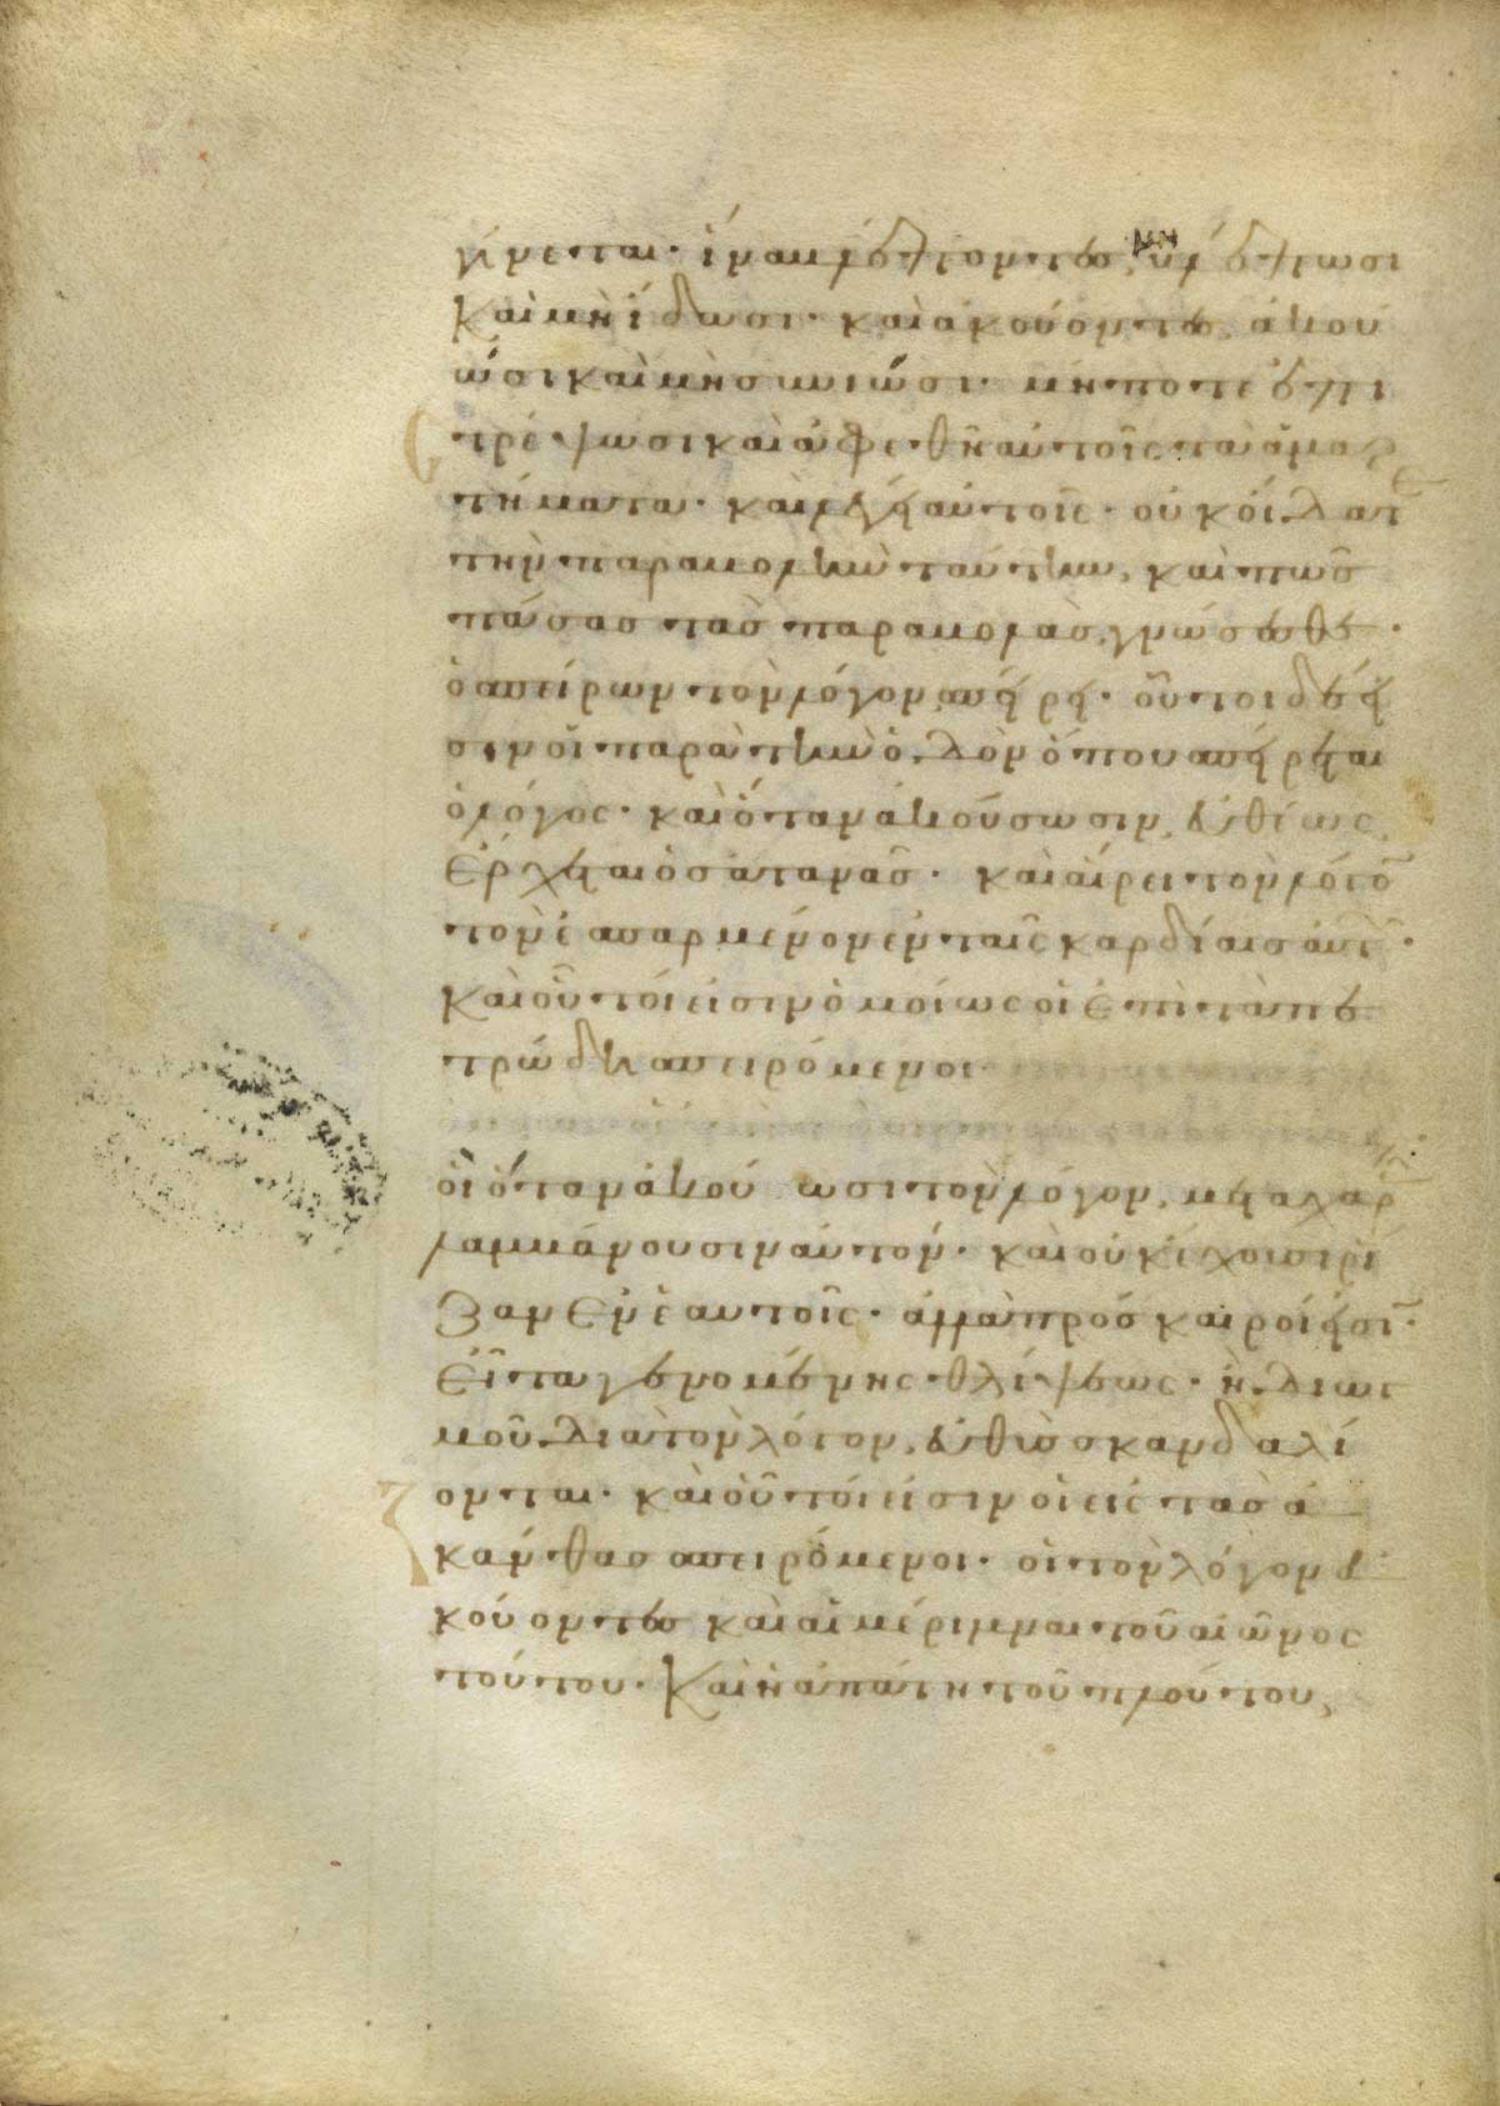 γίνεται· ἵνα βλέποντες, μὴ βλέπωσι
καὶ μὴ ἴδωσι· καὶ ἀκούοντες ἀκού
ωσι καὶ μὴ συνιῶσι· μήποτε ἐπι
τρέψωσι καὶ ἀφεθῆ αὐτοῖς τὰ ἁμαρ
τήματα· καὶ λέγει αὐτοῖς· οὐκ οἴδατε
τὴν παραβολὴν ταύτην, καὶ πῶς
πάσας τὰς παραβολὰς γνώσεσθε·
ὁ σπείρων τὸν λόγον σπείρει· οὗτοι δέ εἰ
σιν οἱ παρὰ τὴν ὁδὸν ὅπου σπείρεται
ὁ λόγος· καὶ ὅταν ἀκούσωσιν, εὐθέως
ἔρχεται ὁ σατανᾶς· καὶ αἴρει τὸν λόγον
τὸν ἐσπαρμένον ἐν ταῖς καρδίαις αὐτῶν·
καὶ οὗτοί εἰσιν ὁμοίως οἱ ἐπὶ τὰ πε
τρώδη σπειρόμενοι
οἳ ὅταν ἀκούωσι τὸν λόγον, μετὰ χαρᾶς
λαμβάνουσιν αὐτόν· καὶ οὐκ ἔχουσι ῥί
ζαν ἐν ἑαυτοῖς· ἀλλὰ πρόσκαιροί εἰσι·
εἶτα γενομένης θλίψεως· ἢ διωγ
μοῦ διὰ τὸν λόγον, εὐθὺς σκανδαλί
ονται· καὶ οὗτοί εἰσιν οἱ εἰς τὰς ἀ
κάνθας σπειρόμενοι· οἱ τὸν λόγον ἀ
κούοντες καὶ αἱ μέριμναι τοῦ αἰῶνος
τούτου· καὶ ἡ ἀπάτη τοῦ πλούτου,